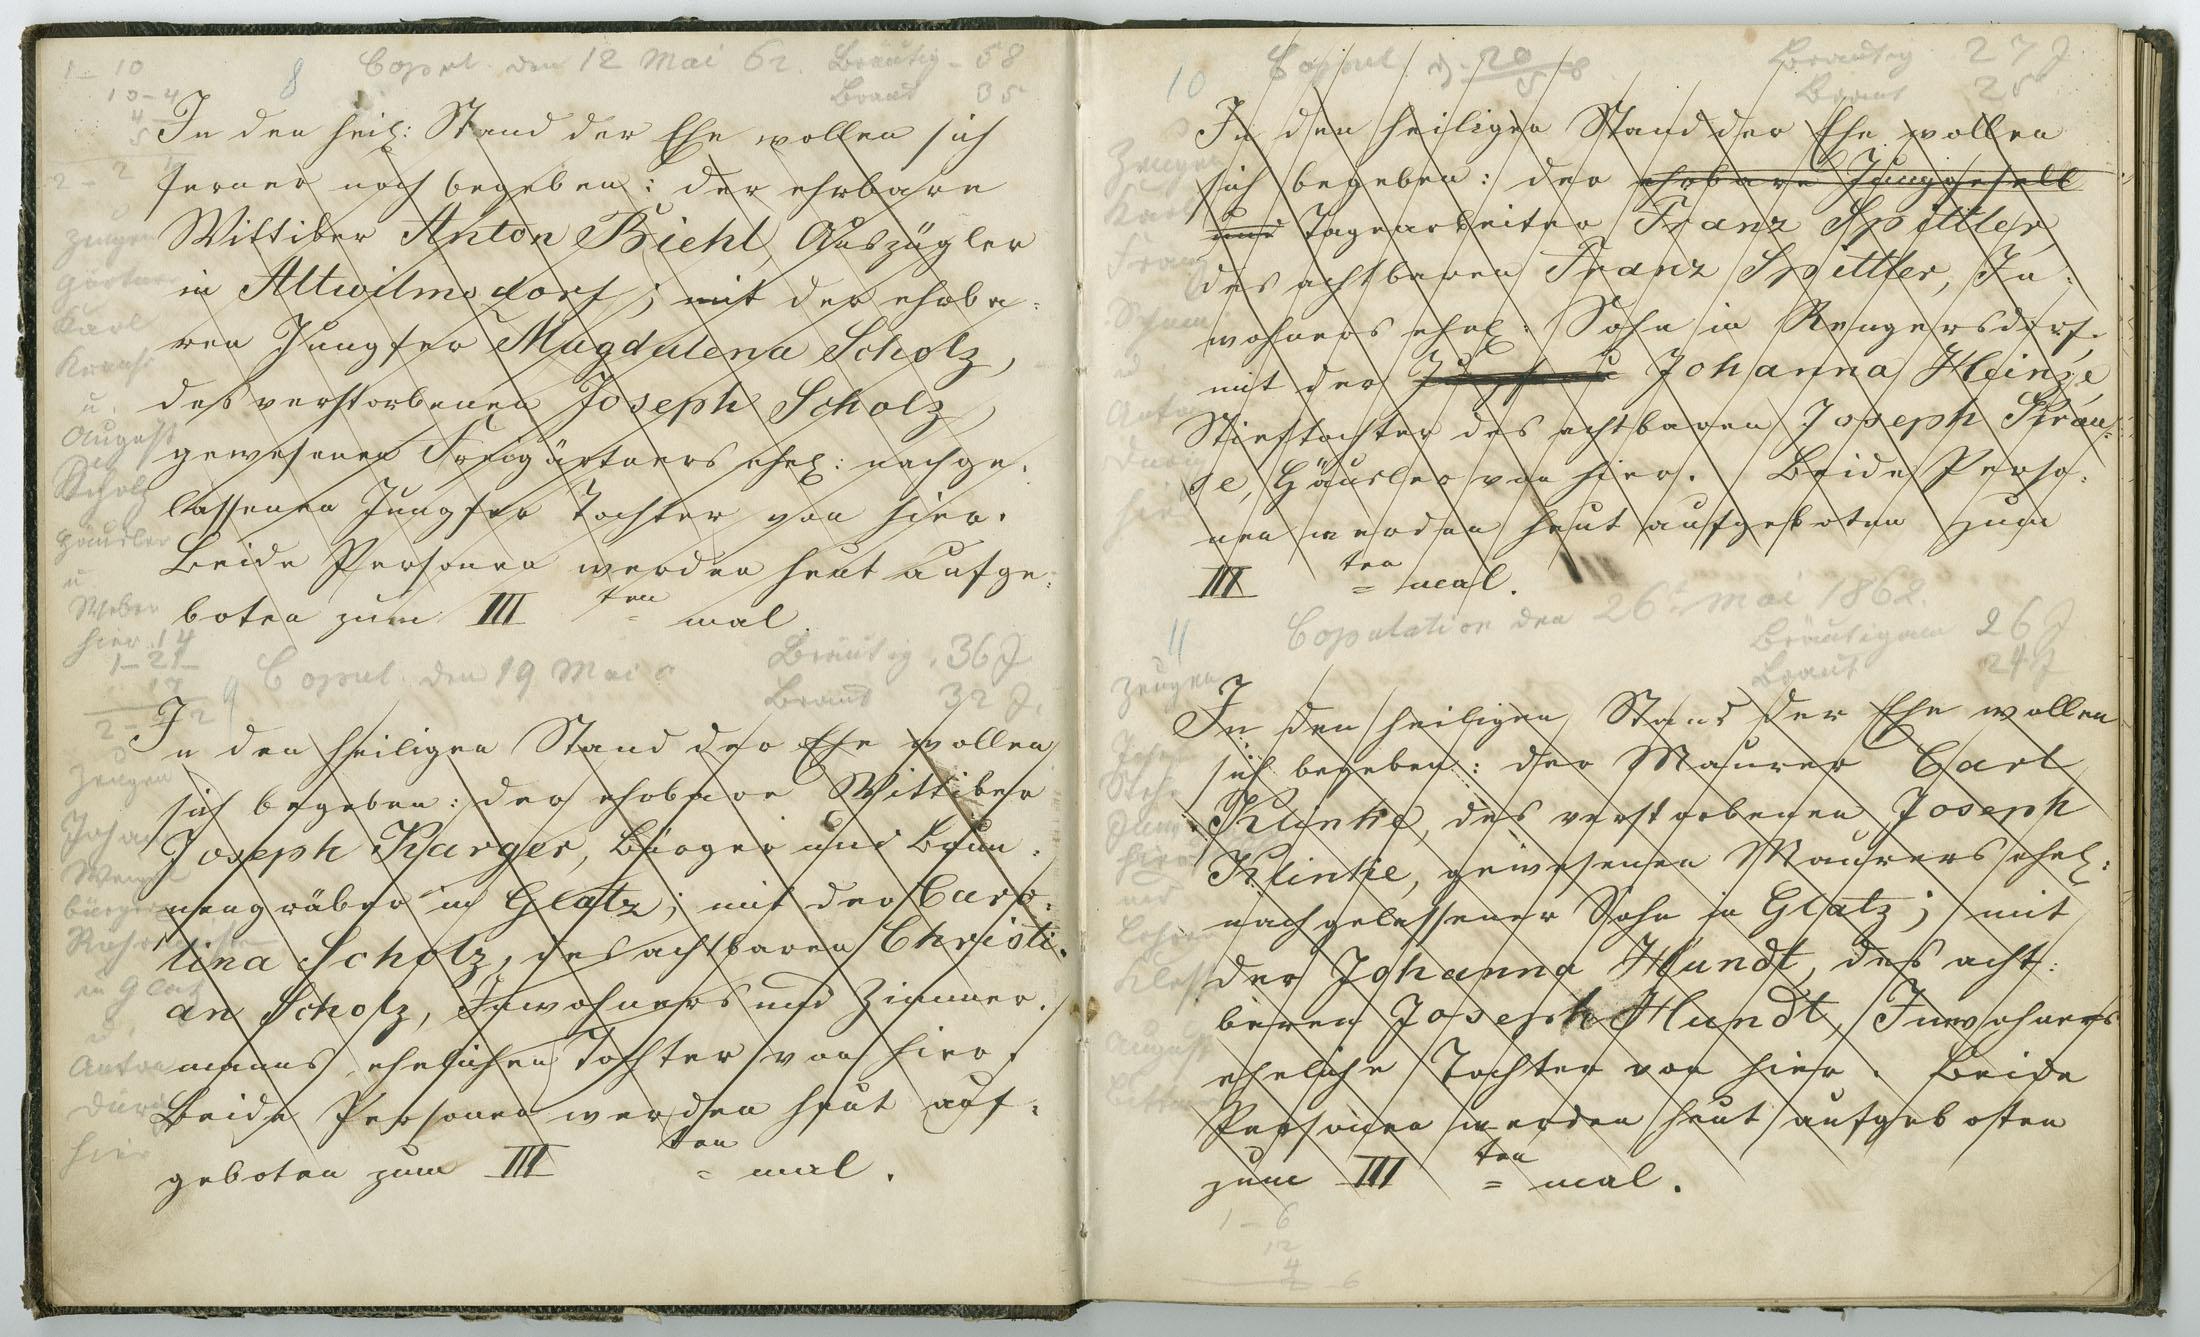 1 – 10
10 – 4
8 Copul. den 12 Mai 62. Bräutig – 58
Braut 35
In den heil: Stand der Ehe wollen sich
ferner noch begeben: der ehrbare
Wittiber Anton Biehl, Auszügler
in Altwilmsdorf; mit der ehrba=
ren Jungfer Magdalena Scholz,
des verstorbenen Joseph Scholz,
gewesenen Freigärtners ehel: nachge=
lassenen Jungfer Tochter von hier.
Beide Personen werden heut aufge=
boten zum III ten = mal.
Zeugen
Gärtner
Karl
Krause
u.
August
Scholz
Häusler
u
Weber
hier
9 Copul. den 19 Mai Bräutig. 36 J
Braut 32 J.
In den heiligen Stand der Ehe wollen
sich begeben: der ehrbare Wittiber
Joseph Karger, Bürger und Brun=
nengräber in Glatz; mit der Caro=
lina Scholz, des achtbaren Christi=
an Scholz, Inwohners und Zimmer=
manns ehelichen Tochter von hier.
Beide Personen werden heut auf=
geboten zum III ten = mal.
Zeugen
Johann
Wenzel
Bürger
in Glatz
u.
Anton
hier
10 Copul. d. 20/5 Bräutig 27 J
Braut 25
In den heiligen Stand der Ehe wollen
sich begeben: der ehrbare Junggesell
und Tagearbeiter Franz Spittler,
des achtbaren Franz Spittler, In=
wohners ehel: Sohn in Rengersdorf.
mit der Johanna Heinze
Stieftochter des achtbaren Joseph Krau=
se, Häusler von hier. Beide Perso=
nen werden heut aufgeboten zum
III ten = mal.
Zeugen
Karl
Franz
Anton
11 Copulation den 26t Mai 1862.
Bräutigam 26 J
Braut 24 J
In den heiligen Stand der Ehe wollen
sich begeben: der Maurer Carl
Klinke, des verstorbenen Joseph
Klinke, gewesenen Maurers ehel:
nachgelassener Sohn in Glatz; mit
der Johanna Hundt, des acht=
baren Joseph Hundt, Inwohners
eheliche Tochter von hier. Beide
Personen werden heut aufgeboten
zum III ten = mal.
Zeugen
August
1 – 6
12
4